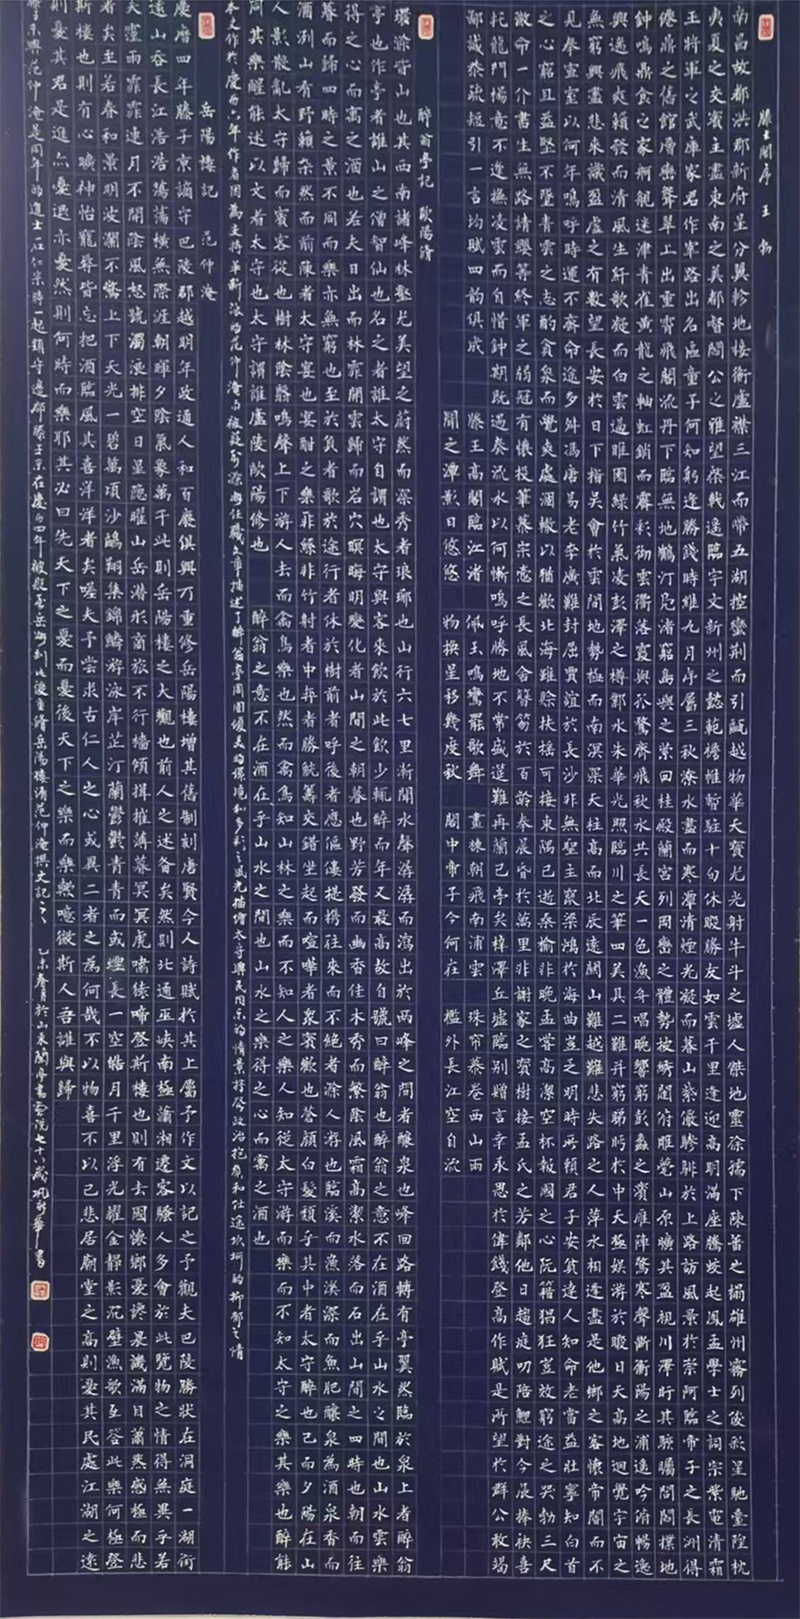 滕王閣序 王勃
南昌故都洪郡新府星分翼軫地接衡廬襟三江而帶五湖控蠻荆而引甌越物華天寶龙光射牛斗之墟人傑地靈徐孺下陳蕃之榻雄州霧列後彩星馳臺隍枕
夷夏之交賓主盡東南之美都督閻公之雅望棨戟遙臨宇文新州之懿範襜帷暫駐十旬休暇勝友如雲千里逢迎高朋滿座騰蛟起鳳孟學士之詞宗紫電清霜
王將軍之武庫家君作宰路出名區童子何知躬逢勝餞時維九月序屬三秋潦水盡而寒潭清煙光凝而暮山紫儼驂騑於上路訪風景於崇阿臨帝子之長洲得
之舊館層巒聳翠上出重霄飛閣流丹下臨無地鶴汀凫渚窮島嶼之縈回桂殿蘭宮列岡巒之體勢披繡闥俯雕甍山原曠其盈視川澤盱其駭矚閭閻撲地
鐘鳴鼎食之家舸艦迷津青雀黄龍之軸虹銷而霽彩徹雲衢落霞與孤鶩齊飛秋水共長天一色漁舟唱晚響窮彭蠡之濱雁陣驚寒聲斷衡陽之浦遙吟俯暢逸
興遄飛爽籟發而清風生纤歌凝而白雲遏睢園綠竹氣凌彭澤之樽鄴水朱華光照臨川之筆四美具二難并窮睇眄於中天極娛游於暇日天高地迥覺宇宙之
無窮興盡悲來識盈虛之有數望長安於日下指吳會於雲間地勢極而南溟深天柱高而北辰遠關山難越難悲失路之人萍水相逢盡是他鄉之客懷帝閽而不
見奉宣室以何年嗚呼時運不齊命途多舛馮唐易老李廣難封屈賈誼於長沙非無聖主竄梁鴻於海曲豈乏明時所賴君子安貧達人知命老當益壯寧知白首
之心窮且益堅不墜青雲之志酌貪泉而覺爽處涸轍以猶歡北海雖賒扶搖可接東隅已逝桑榆非晚孟嘗高潔空懷報國之心阮籍猖狂豈效窮途之哭勃三尺
微命一介書生無路請纓等終軍之弱冠有懷投筆慕宗愨之長風舍簪笏於百齡奉晨昏於萬里非謝家之寶樹接孟氏之芳鄰他日趨庭叨陪鯉對今晨捧袂喜
托龍門楊意不逢撫凌雲而自惜鍾期既遇奏流水以何慚嗚呼勝地不常盛筵難再蘭亭已矣梓澤丘墟臨別贈言幸承恩於偉餞登高作賦是所望於群公敢竭
鄙誠恭疏短引一言均賦四韻俱成 滕王高閣臨江渚 佩玉鳴鸞罷歌舞 畫棟朝飛南浦雲 珠帘暮卷西山雨
閒之潭影日悠悠 物換星移幾度秋 閣中帝子今何在 檻外長江空自流
醉翁亭記 歐陽脩
環滁皆山也其西南諸峰林壑尤美望之蔚然而深秀者琅琊也山行六七里漸聞水聲潺潺而瀉出於兩峰之間者釀泉也峰回路轉有亭翼然臨於泉上者醉翁
亭也作亭者誰山之僧智仙也名之者誰太守自謂也太守與客來飲於此飲少輒醉而年又最高故自號曰醉翁也醉翁之意不在酒在乎山水之間也山水之樂
得之心而寓之酒也若夫日出而林霏開雲歸而岩穴暝晦明變化者山間之朝暮也野芳發而幽香佳木秀而繁陰風霜高潔水落而石出山間之四時也朝而往
暮而歸四時之景不同而樂亦無窮也至於負者歌於途行者休於樹前者呼後者應傴僂提攜往來而不絕者滁人游也臨溪而漁溪深而魚肥釀泉為酒泉香而
酒洌山肴野蔌杂然而前陳者太守宴也宴酣之樂非絲非竹射者中弈者勝觥籌交錯坐起而喧嘩者衆賓歡也蒼顏白髮頹乎其中者太守醉也已而夕陽在山
人影散亂太守歸而賓客從也樹林陰翳鳴聲上下游人去而禽鳥樂也然而禽鳥知山林之樂而不知人之樂人知從太守游而樂而不知太守之樂其樂也醉能
同其樂醒能述以文者太守也太守謂誰廬陵歐陽修也 醉翁之意不在酒在乎山水之間也山水之樂得之心而寓之酒也
本文作於慶历六年作者因為主持革新派的范仲淹而被貶到滁州任職文章描述了醉翁亭周圍優美的環境和多彩之風光描繪太守與民同樂的情景抒發政治抱負和仕途坎坷的抑鬱之情
岳陽樓記 范仲淹
慶曆四年滕子京謫守巴陵郡越明年政通人和百廢俱興乃重修岳陽樓增其舊制刻唐賢今人詩賦於其上屬予作文以記之予觀夫巴陵勝狀在洞庭一湖銜
遠山吞長江浩浩蕩蕩橫無際涯朝暉夕陰氣象萬千此則岳陽樓之大觀也前人之述备矣然則北通巫峽南極瀟湘遷客騷人多會於此覽物之情得無異乎若
夫霪雨霏霏連月不開陰風怒號濁浪排空日星隱曜山岳潛形商旅不行檣傾楫摧薄暮冥冥虎嘯猿啼登斯樓也則有去國懷鄉憂讒畏譏滿目蕭然感極而悲
者矣至若春和景明波瀾不驚上下天光一碧萬頃沙鷗翔集錦鱗游泳岸芷汀蘭鬱鬱青青而或煙長一空皓月千里浮光耀金靜影沉璧漁歌互答此樂何極登
斯樓也則有心曠神怡寵辱皆忘把酒臨風其喜洋洋者矣嗟夫予嘗求古仁人之心或異二者之為何哉不以物喜不以己悲居廟堂之高則憂其民處江湖之遠
則憂其君是進亦憂退亦憂然則何時而樂耶其必曰先天下之憂而憂後天下之樂而樂歟噫微斯人吾誰與歸
滕子京與范仲淹是同年的進士在仁宗時一起鎮守邊郡滕子京在慶历四年被貶至岳州到此後重修岳陽樓請范仲淹撰文記之 乙未春月於山東蘭亭書畫院七十六歲 書